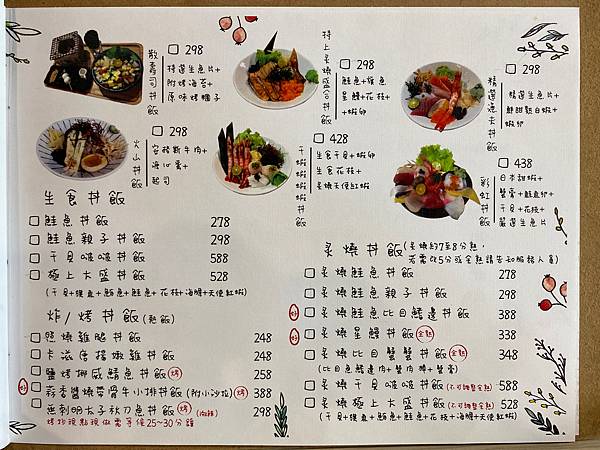 散壽司丼飯
298
特選生魚片+
附烤海苔+
原味烤櫛子
特上炙燒盛合丼飯
298
鮭魚+旗魚
星鰻+花枝+
+蝦卵
精選漁夫丼飯
298
精選生魚片+
鮮甜甜白蝦+
蝦卵
火山丼飯
298
安格斯牛肉+
溫心蛋+
起司
干蝦蝦蝦丼飯
428
生食干貝+蝦卵
生食花枝+
炙燒天使紅蝦
彩虹丼飯
438
日本甜蝦+
蟹膏+鮭魚卵+
干貝+花枝+
嚴選生魚片
生食丼飯
鮭魚丼飯 278
鮭魚親子丼飯 298
干貝啵啵丼飯 588
極上大盛丼飯 528
(干貝+鰹魚+鮪魚+鮭魚+花枝+海膽+天使紅蝦)
炸/烤丼飯(熟飯)
照燒雞腿丼飯 248
卡滋唐揚嫩雞丼飯 248
鹽烤挪威鯖魚丼飯(烤) 258
蒜香醬燒帶骨牛小排丼飯(附小沙拉)(烤) 388
無刺明太子秋刀魚丼飯(烤)(微辣) 298
烤物現點現做需等候25~30分鐘
炙燒丼飯(炙燒約7至8分熟,
若需改5分或全熟請告知服務人員)
炙燒鮭魚丼飯 278
炙燒鮭魚親子丼飯 298
炙燒鮭魚比目鰭邊丼飯 388
炙燒星鰻丼飯(全熟) 338
炙燒比目蟹蟹丼飯(全熟) 348
(比目魚鰭邊肉+蟹肉棒+蟹膏)
炙燒干貝啵啵丼飯(不可調整全熟) 588
炙燒極上大盛丼飯(不可調整全熟) 528
(干貝+鰹魚+鮪魚+鮭魚+花枝+海膽+天使紅蝦)